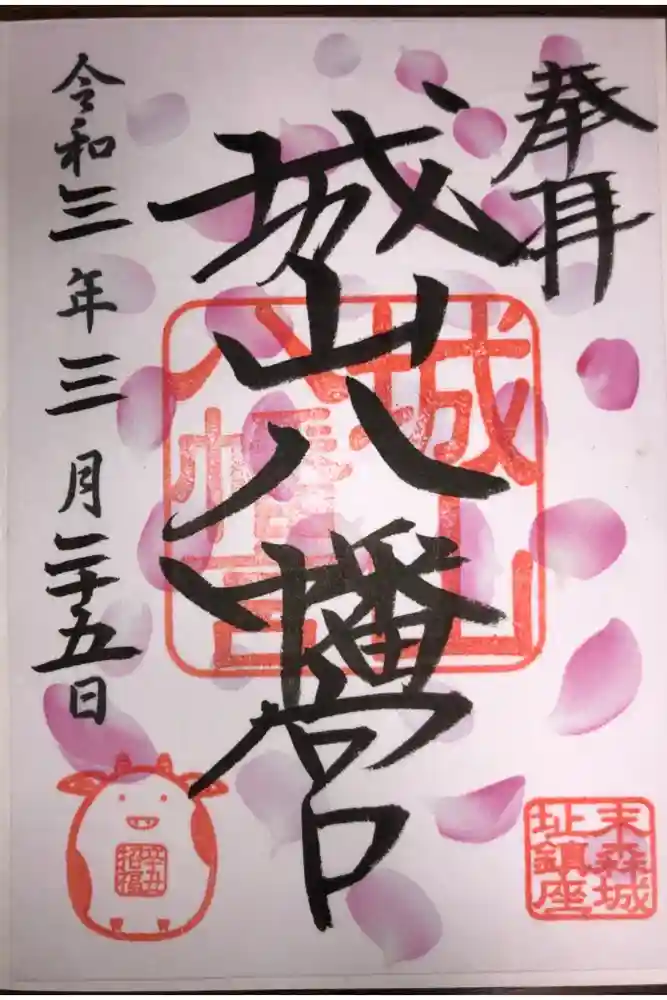 奉拝
城山八幡宮
城山
八幡宮
令和三年三月二十五日
末森城
址鎮座
辛丑
招福